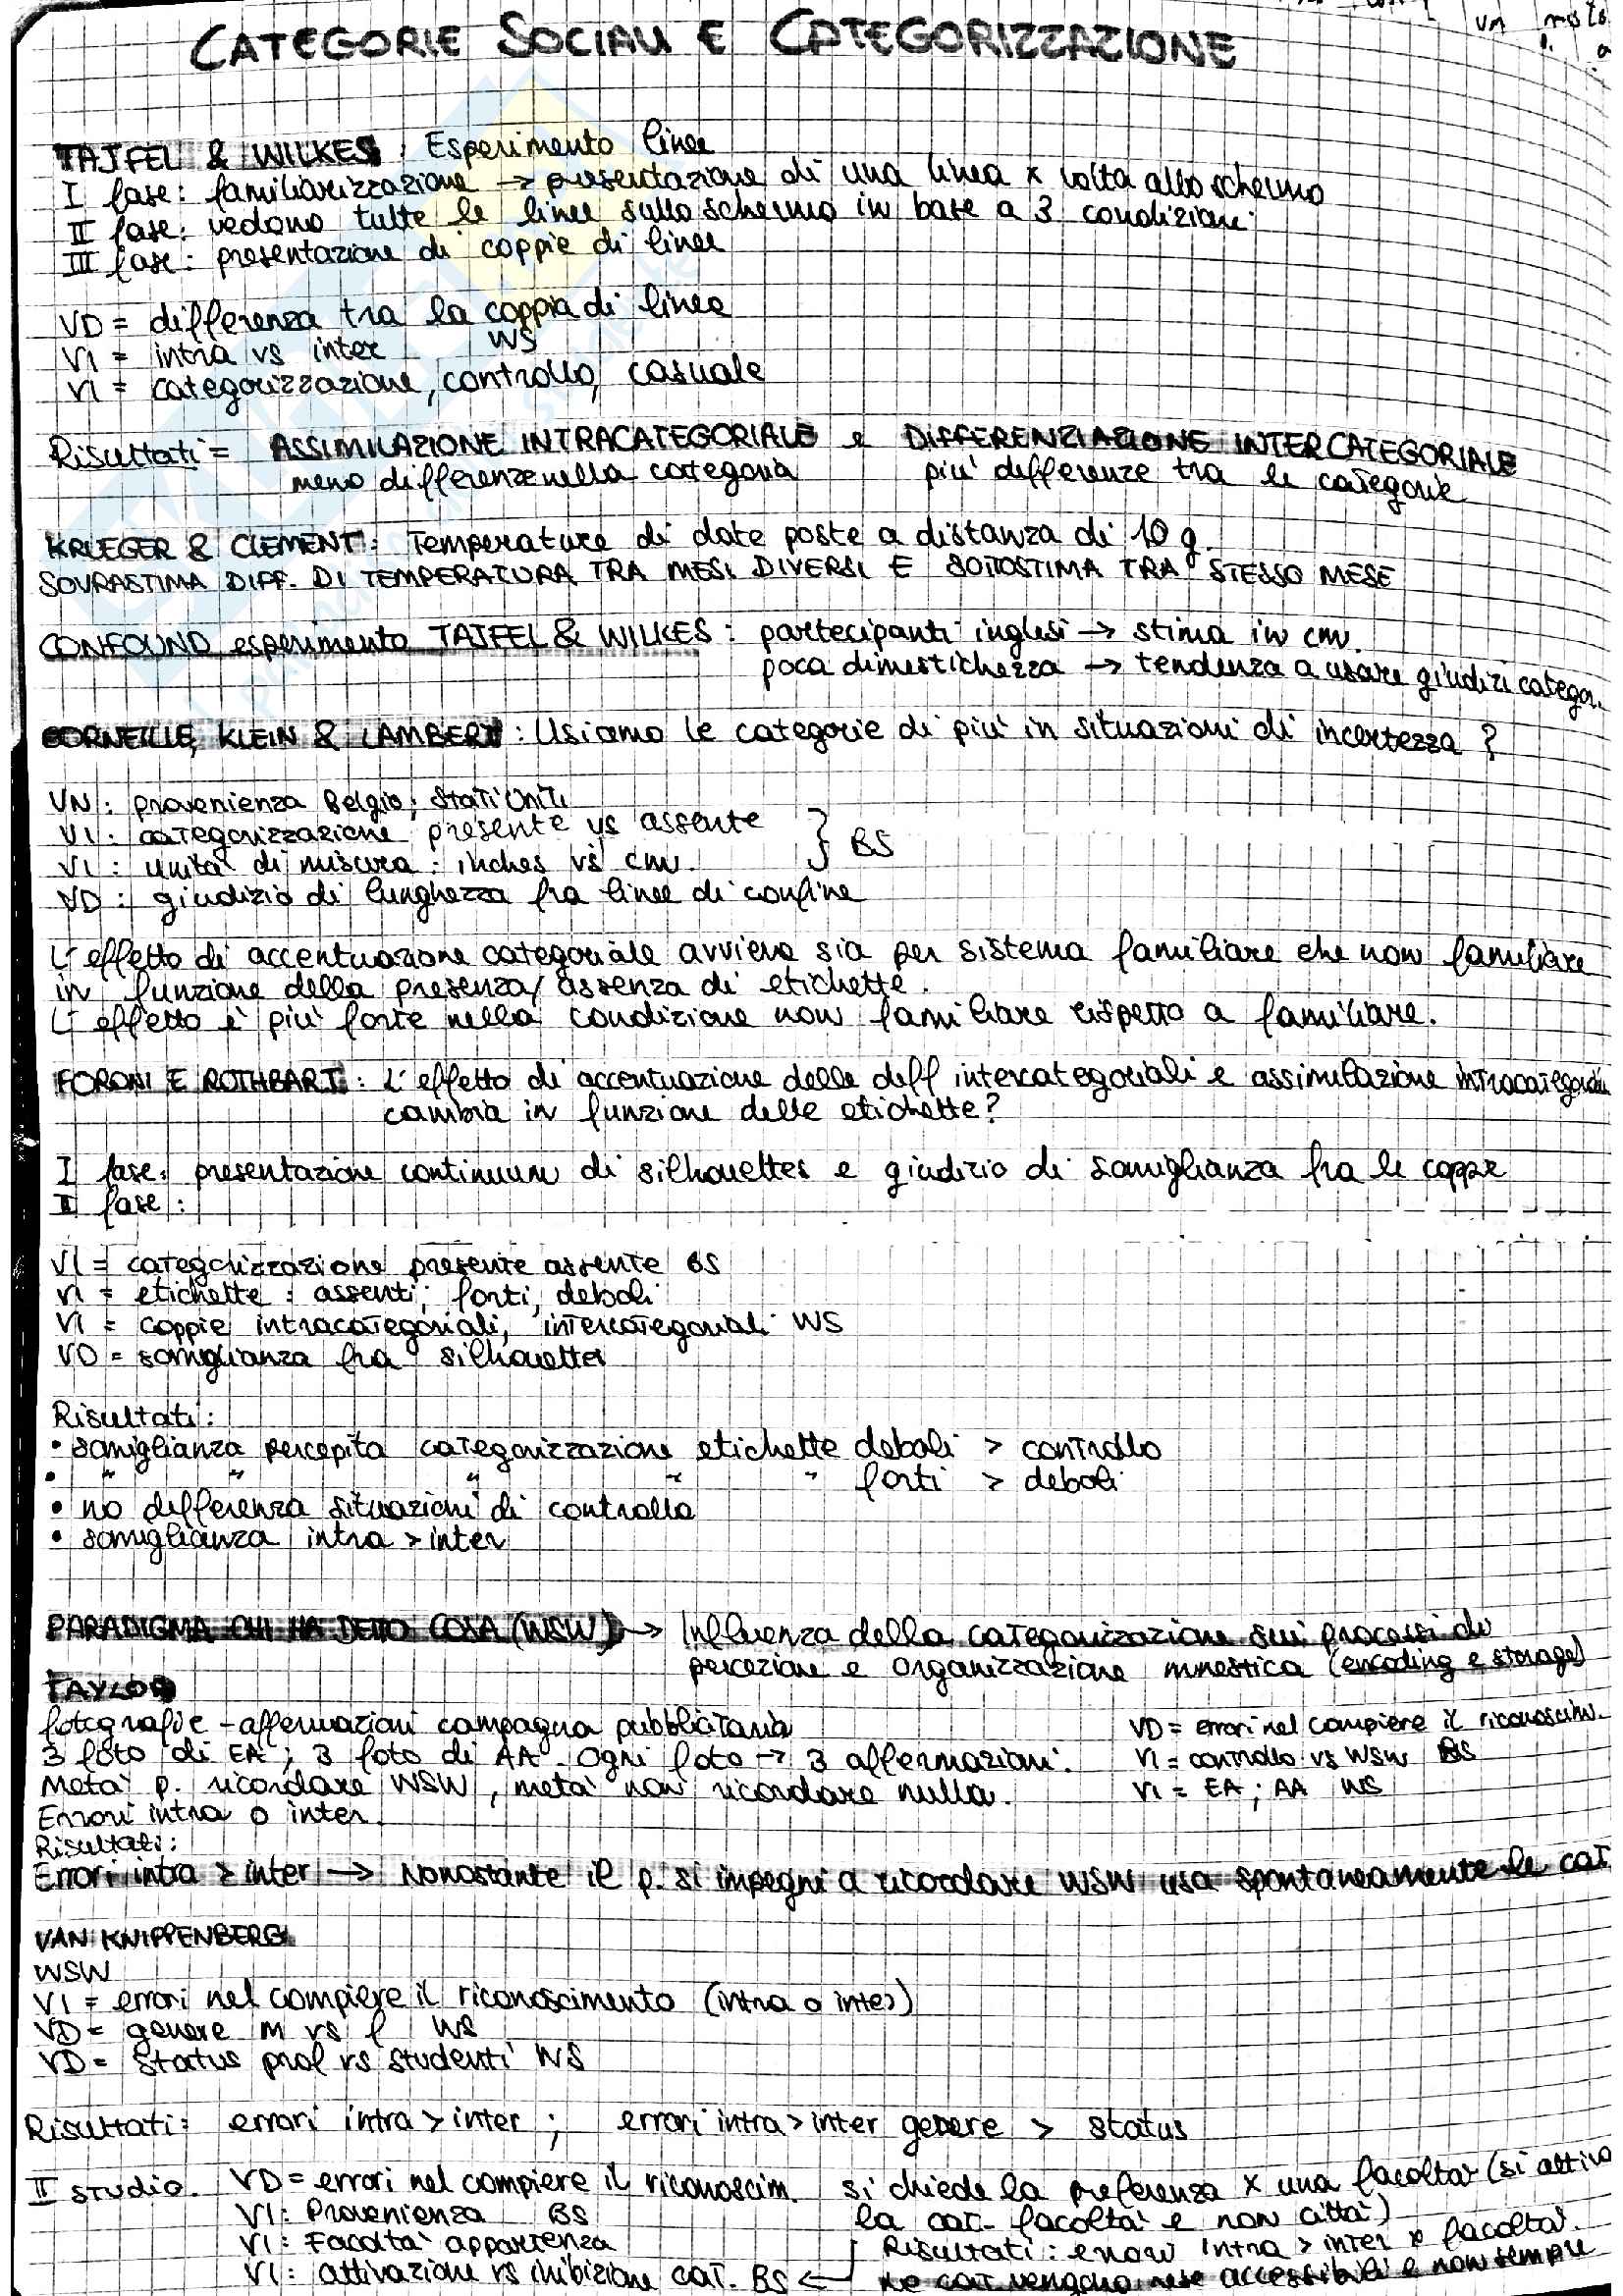 CATEGORIE SOCIALI E CATEGORIZZAZIONE
TAJFEL & WILKES: Esperimento linee
I fase: familiarizzazione → presentazione di una linea x volta allo schermo
II fase: vedono tutte le linee sullo schermo in base a 3 condizioni
III fase: presentazione di coppie di linee
VD = differenza tra la coppia di linee
VI = intra vs inter WS
VI = categorizzazione, controllo, casuale
Risultati = ASSIMILAZIONE INTRACATEGORIALE e DIFFERENZIAZIONE INTERCATEGORIALE
meno differenze nella categoria più differenze tra le categorie
KRUEGER & CLEMENT: Temperature di date poste a distanza di 10 g.
SOVRASTIMA DIFF. DI TEMPERATURA TRA MESI DIVERSI E SOTTOSTIMA TRA STESSO MESE
CONFOUND esperimento TAJFEL & WILKES: partecipanti inglesi → stima in cm.
poca dimestichezza → tendenza a usare giudizi categor.
CORNEILLE, KLEIN & LAMBERT: Usiamo le categorie di più in situazioni di incertezza?
VN: provenienza Belgio; Stati Uniti
VI: categorizzazione presente vs assente
VI: unità di misura: inches vs cm. } BS
VD: giudizio di lunghezza fra linee di confine
L'effetto di accentuazione categoriale avviene sia per sistema familiare che non familiare
in funzione della presenza/assenza di etichette.
L'effetto è più forte nella condizione non familiare rispetto a familiare.
FORONI E ROTHBART: L'effetto di accentuazione delle diff intercategoriali e assimilazione intracategoriali
cambia in funzione delle etichette?
I fase: presentazione continuum di silhouettes e giudizio di somiglianza fra le coppie
II fase:
VI = categorizzazione presente assente BS
VI = etichette: assenti; forti, deboli
VI = coppie intracategoriali, intercategoriali WS
VD = somiglianza fra silhouettes
Risultati:
• somiglianza percepita categorizzazione etichette deboli > controllo
• " " " " " forti > deboli
• no differenza situazioni di controllo
• somiglianza intra > inter
PARADIGMA CHI HA DETTO COSA (WSW) → Influenza della categorizzazione sui processi di
percezione e organizzazione mnestica (encoding e storage)
TAYLOR
fotografie - affermazioni campagna pubblicitaria VD = errori nel compiere il riconoscim.
3 foto di EA; 3 foto di AA. Ogni foto → 3 affermazioni. VI = controllo vs WSW BS
Metà p. ricordare WSW, metà non ricordare nulla. VI = EA; AA WS
Errori intra o inter.
Risultati:
Errori intra > inter → Nonostante il p. si impegni a ricordare WSW usa spontaneamente le cat
VAN KNIPPENBERG
WSW
VI = errori nel compiere il riconoscimento (intra o inter)
VD = genere m vs f WS
VD = Status prof vs studenti WS
Risultati: errori intra > inter; errori intra > inter genere > status
II studio. VD = errori nel compiere il riconoscim. si chiede la preferenza x una facoltà (si attiva
VI: Provenienza BS la cat. facoltà e non città)
VI: Facoltà appartenenza Risultati: errori intra > inter x facoltà.
VI: attivazione vs inibizione cat. BS ← Le cat vengono rese accessibili e non sempre